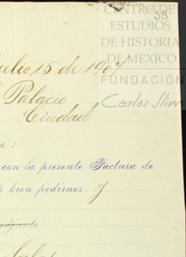 CENTRO DE
ESTUDIOS
DE HISTORIA
DE MEXICO
FUNDACIÓN
Carlos Slim
58
Julio 15 de 190
Palacio
Ciudad
:
con la presente Factura de
bien pedirnos y